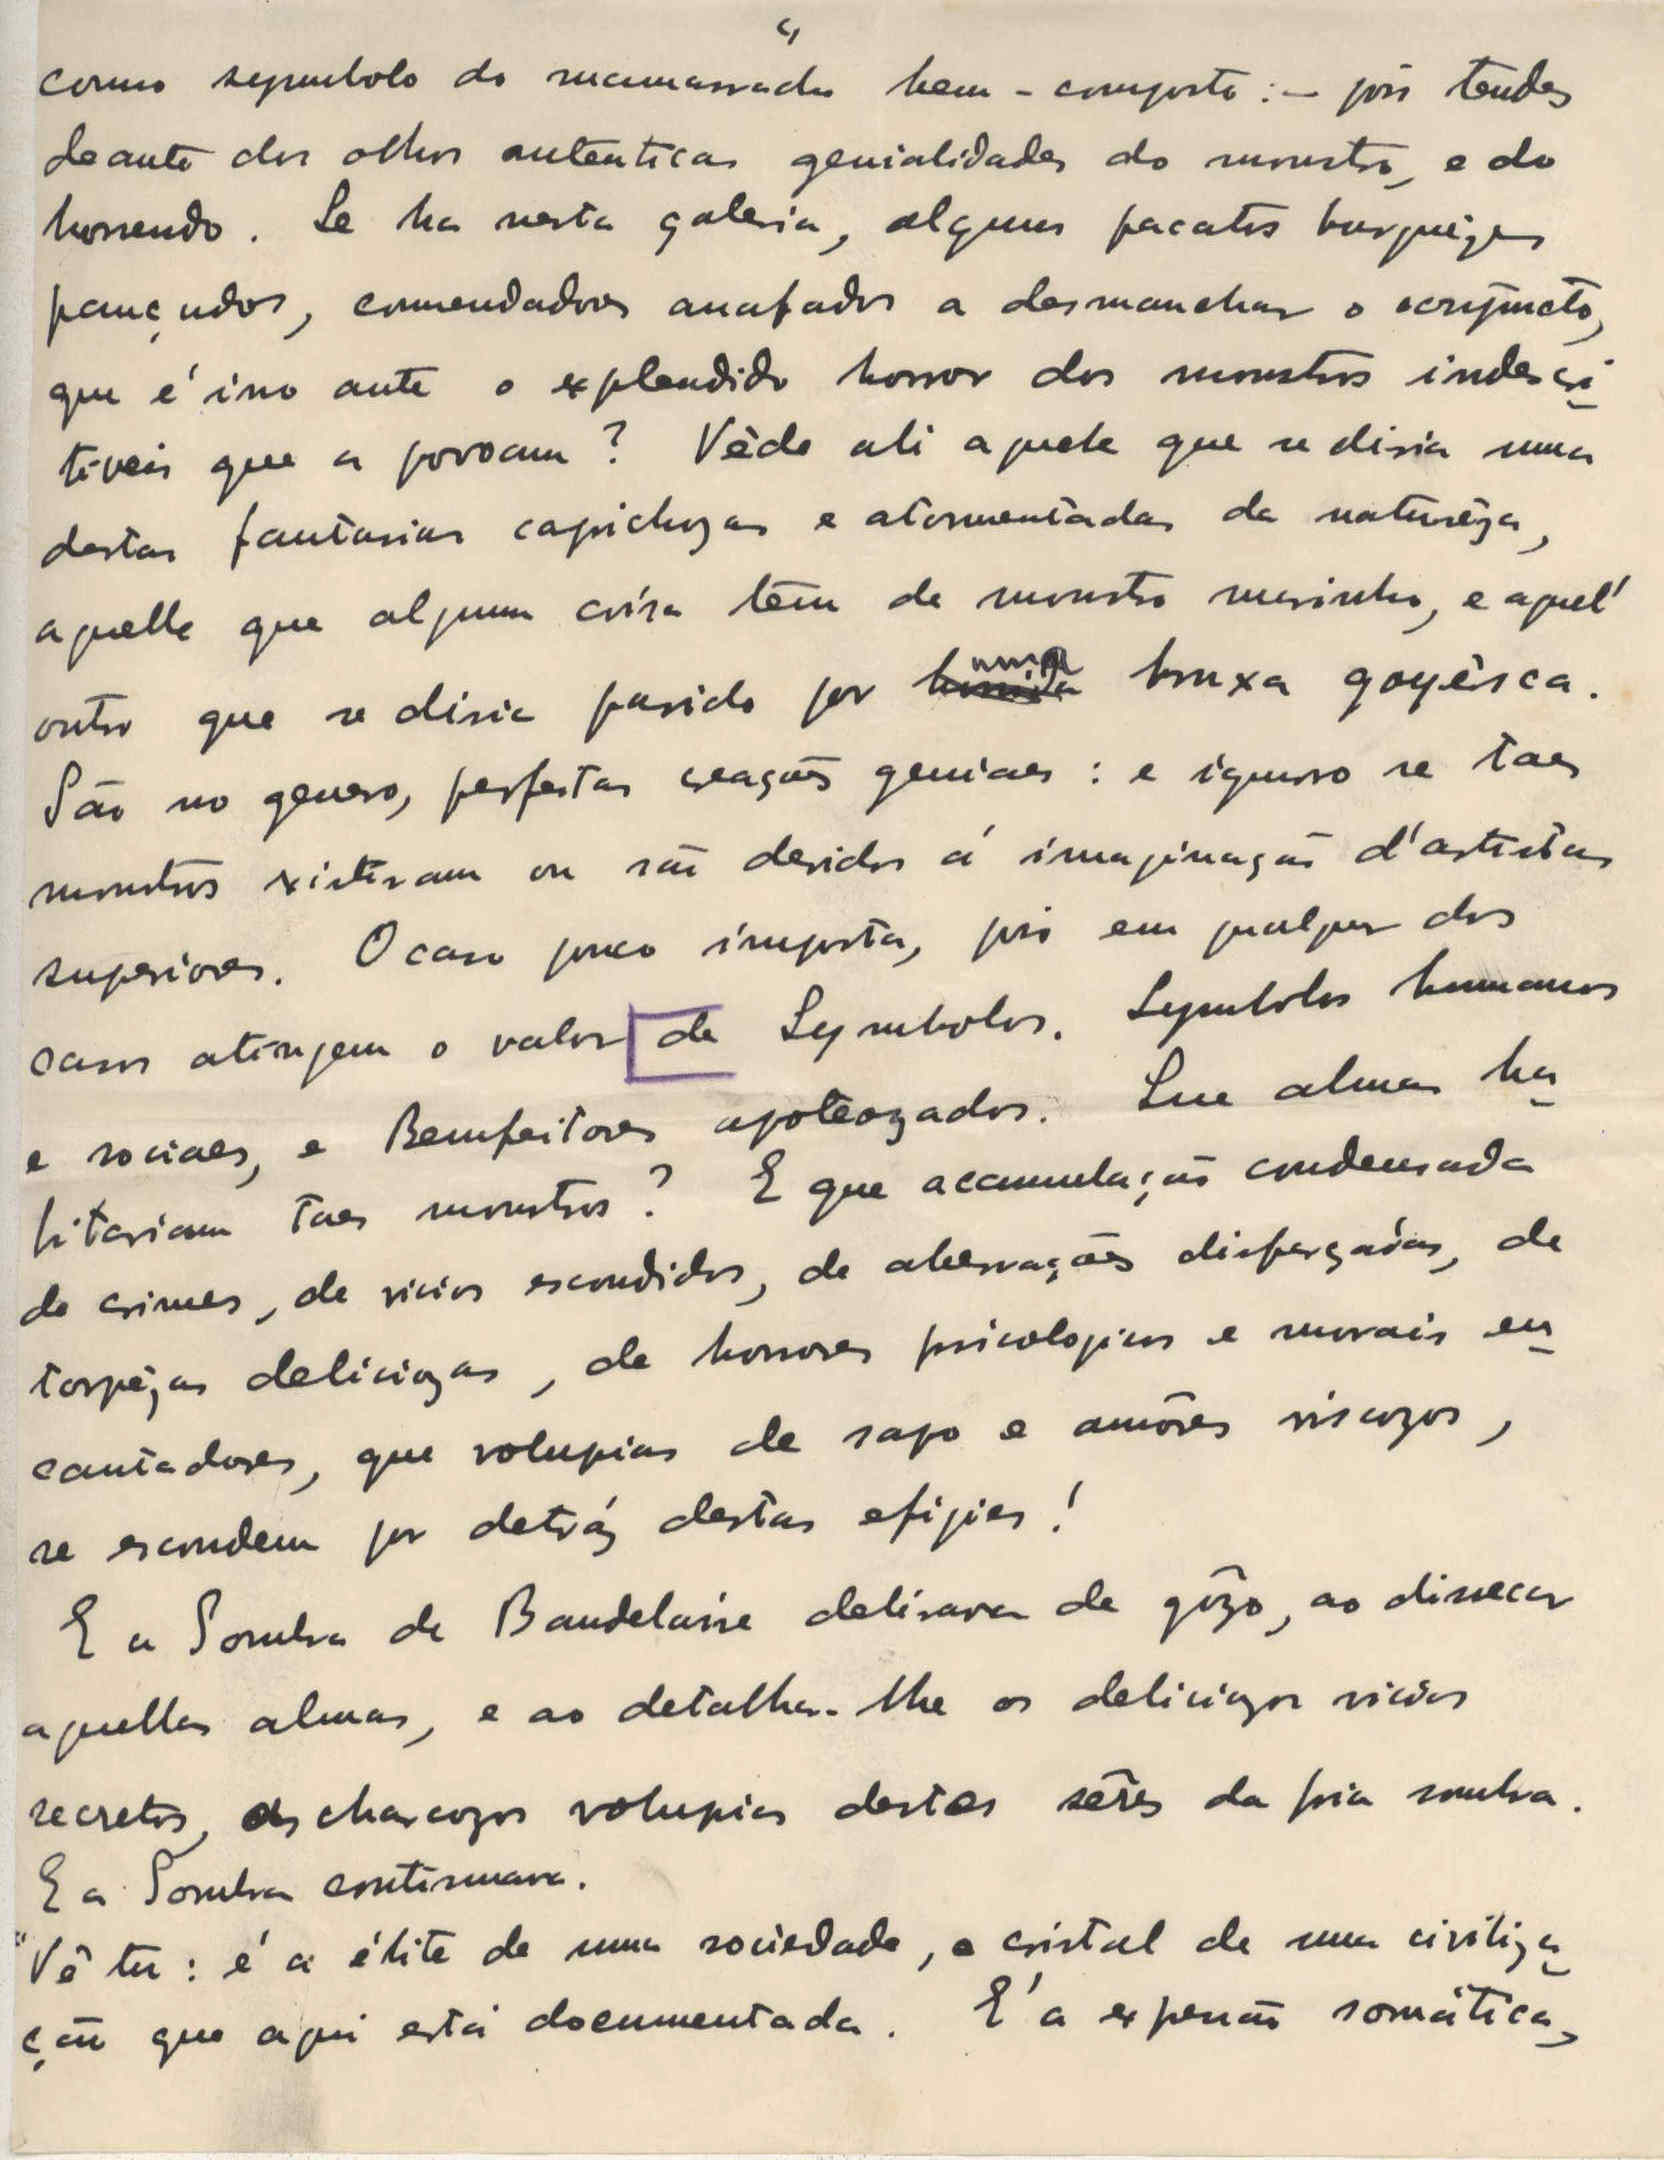 como symbolo do mamarracho bem-composto:- pois tendes
deante dos olhos autenticas genialidades do monstro, e do
horrendo. Se ha nesta galeria, alguns pacatos burguêzes
pançudos, comendadores anafados a desmanchar o conjuncto,
que é isso ante o explendido horror dos monstros indescri
tiveis que a povoam? Vêde ali aquele que se diria uma
destas fantasias caprichozas e atormentadas da naturêza,
aquelle que alguma coisa têm de monstro marinho, e aquel'
outro que se diria parido por uma bruxa goyêsca.
São no genero, perfeitas creações geniaes: e ignoro se taes
monstros existiram ou são devidos á imaginação d'artistas
superiores. O caso pouco importa, pois em qualquer dos
casos atingem o valor de Symbolos. Symbolos humanos
e sociaes, e Bemfeitores apoteozados. Que almas ha
bitariam taes monstros? E que accumulação condensada
de crimes, de vicios escondidos, de aberrações disfarçadas, de
torpêzas deliciozas, de horrores psicologicos e morais en
cantadores, que volupias de sapo e amôres viscozos,
se escondem por detráz destas efigies!
E a Sombra de Baudelaire delirava de gôzo, ao dissecar
aquellas almas, e ao detalhar-lhe os deliciozos vicios
secretos, as charcozas volupias destes sêres da fria sombra.
E a Sombra continuava.
"Vê tu: é a élite de uma sociedade, o cristal de uma civiliza
ção que aqui está documentada. E' a expressão somática,